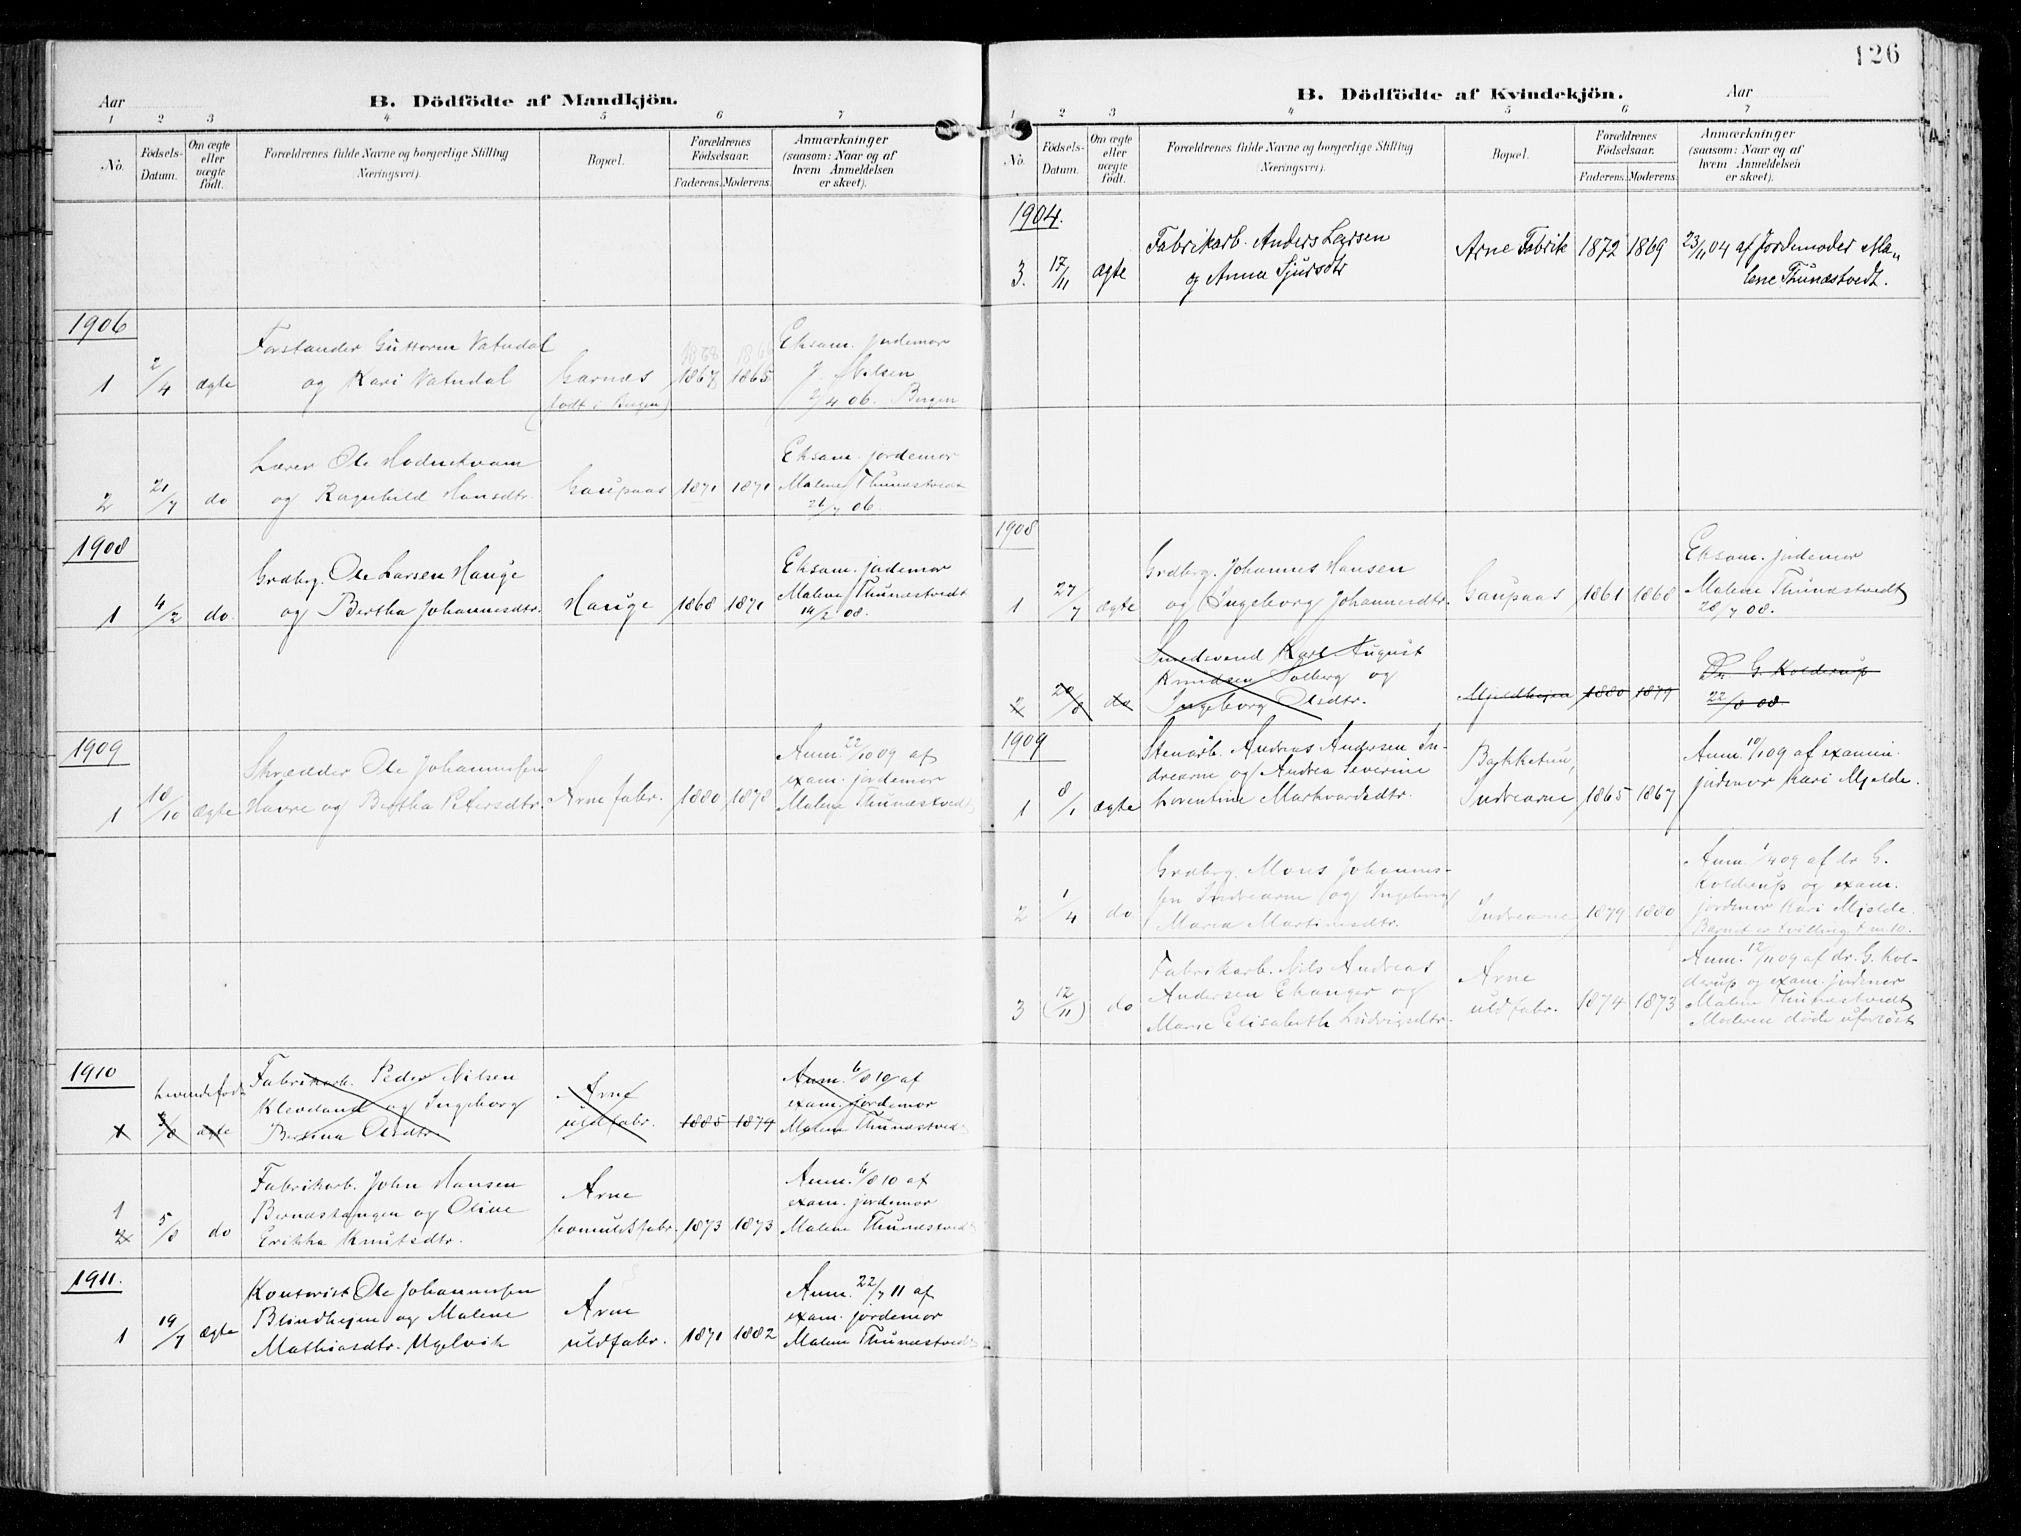 Aar
B. Dödfödte af Mandkjön.
1 2 3 4 5 6 7
No.
Födsels-Datum.
Om ægte eller uægte födt.
Forældrenes fulde Navne og borgerlige Stilling
(Næringsvei).
Bopæl.
Forældrenes Födselsaar.
Faderens. Moderens.
Anmærkninger
(saasom: Naar og af
hvem Anmeldelsen
er skeet).
1906
1 2/4 ægte
Forstander Guttorm Vatndal
og Kari Vatndal
Garnæs
(født i Bergen)
1868 1867 1865
Eksam. jordemor
J. Nelsen
2/4 06. Bergen
2 21/7 do
Lærer Ole
og Ragnhild Hansdtr.
Gaupaas 1871 1871
Eksam. jordemor
Malene Thunæstvedt
21/7 06.
1908
1 4/2 do.
Grdbrg. Ole Larsen Hauge
og Bertha Johannesdtr.
Hauge 1868 1871
Eksam. jordemor
Malene Thunæstvedt
14/2 08.
1909
1 18/10 ægte
Skrædder Ole Johannessen
Havre og Bertha Petersdtr.
Arne fabr. 1880 1878
Anm. 22/10 09 af
exam. jordemor
Malene Thunæstvedt
1910
Levendefødt
1 5/8 ægte
Fabrikarb. Peder Nilsen
Kleveland og Ingeborg
Bertina Olsdtr.
Arne
uldfabr.
1885 1879
Anm. 6/8 10 af
exam. jordemor
Malene Thunæstvedt
1
2 5/8 do
Fabrikarb. John Hansen
Bernæstangen og Oline
Erikka Knutsdtr.
Arne
bomuldsfabr. 1873 1873
Anm. 6/8 10 af
exam. jordemor
Malene Thunæstvedt
1911.
1 19/7 ægte
Kontorist Ole Johannessen
Blindheim og Malene
Mathiasdtr. Ugelvik
Arne
uldfabr. 1871 1882
Anm. 22/7 11 af
exam. jordemor
Malene Thunæstvedt
126
B. Dödfödte af Kvindekjön.
Aar
1 2 3 4 5 6 7
No.
Födsels-Datum.
Om ægte eller uægte födt.
Forældrenes fulde Navne og borgerlige Stilling
(Næringsvei).
Bopæl.
Forældrenes Födselsaar.
Faderens. Moderens.
Anmærkninger
(saasom: Naar og af
hvem Anmeldelsen
er skeet).
1904.
3. 17/11 ægte
Fabrikarb. Anders Larsen
og Anna Sjursdtr
Arne Fabrik 1872 1869
23/11 04 af Jordemoder Ma-
lene Thunæstvedt.
1908
1 27/7 ægte
Grdbrg. Johannes Hansen
og Ingeborg Johannesdtr.
Gaupaas 1861 1868
Eksam. jordemor
Malene Thunæstvedt
28/7 08.
2 20/8 do
Smedsvend Karl August
Knudsen Solberg og
Ingeborg Olsdtr.
Mjeldheim 1880 1879
Dr G. Koldrup
22/8 08
1909
1 8/1 ægte
Stenarb. Andreas Andersen In-
drearne og Andrea Severine
Lorentine Markvardsdtr.
Bakketun
Indrearne 1865 1867
Anm. 10/1 09 af examin.
jordemor Kari Mjelde.
2 1/4 do
Grdbrg. Mons Johannes-
sen Indrearne og Ingeborg
Maria Martinsdtr.
Indrearne 1879 1880
Anm. 1/4 09 af dr. G.
Koldrup og exam.
jordemor Kari Mjelde.
Barnet er tvilling t. m. 10.
3 (12/11) do
Fabrikarb. Nils Andreas
Andersen Ekanger og
Marie Elisabeth Ludvigsdtr.
Arne
uldfabr. 1874 1873
Anm. 12/11 09 af dr. G. Kol-
derup og exam. jordemor
Malene Thunæstvedt
Moderen døde uforløst